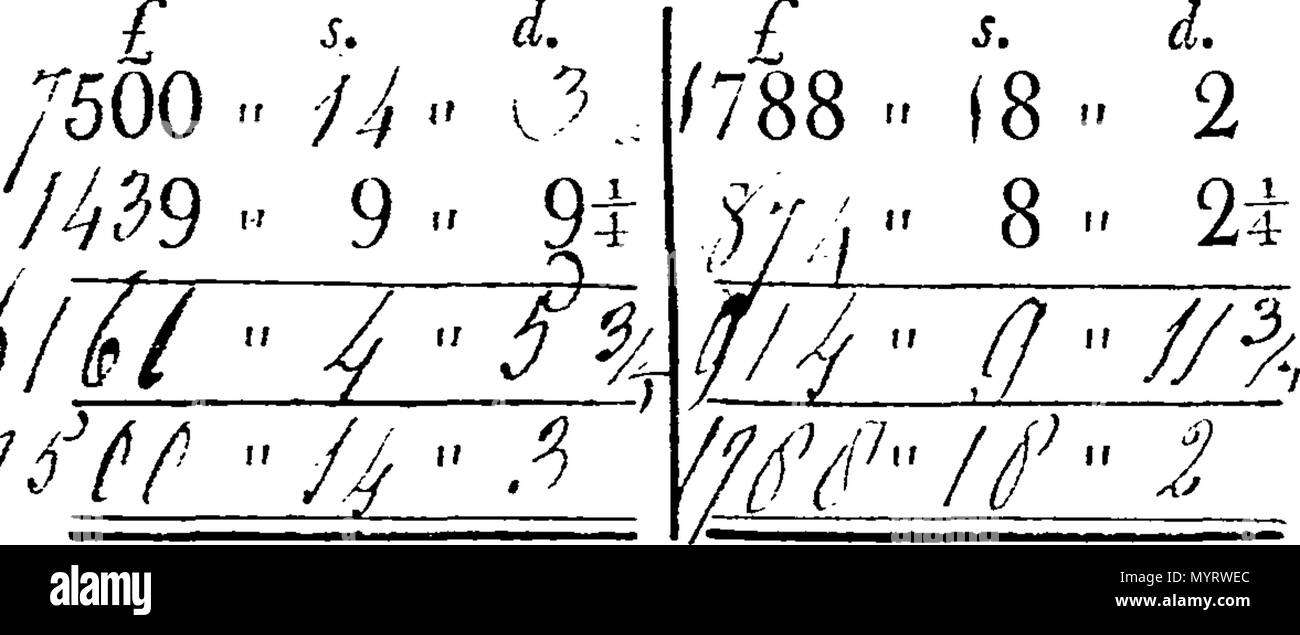 £ s. d.
7500 " 14 " 3
1439 " 9 " 9 1/4
6161 " 4 " 5 3/4
7500 " 14 " 3
£ s. d.
1788 " 18 " 2
874 " 8 " 2 1/4
914 " 9 " 11 3/4
1788 " 18 " 2
alamy
Image ID: MYRWEC
www.alamy.com